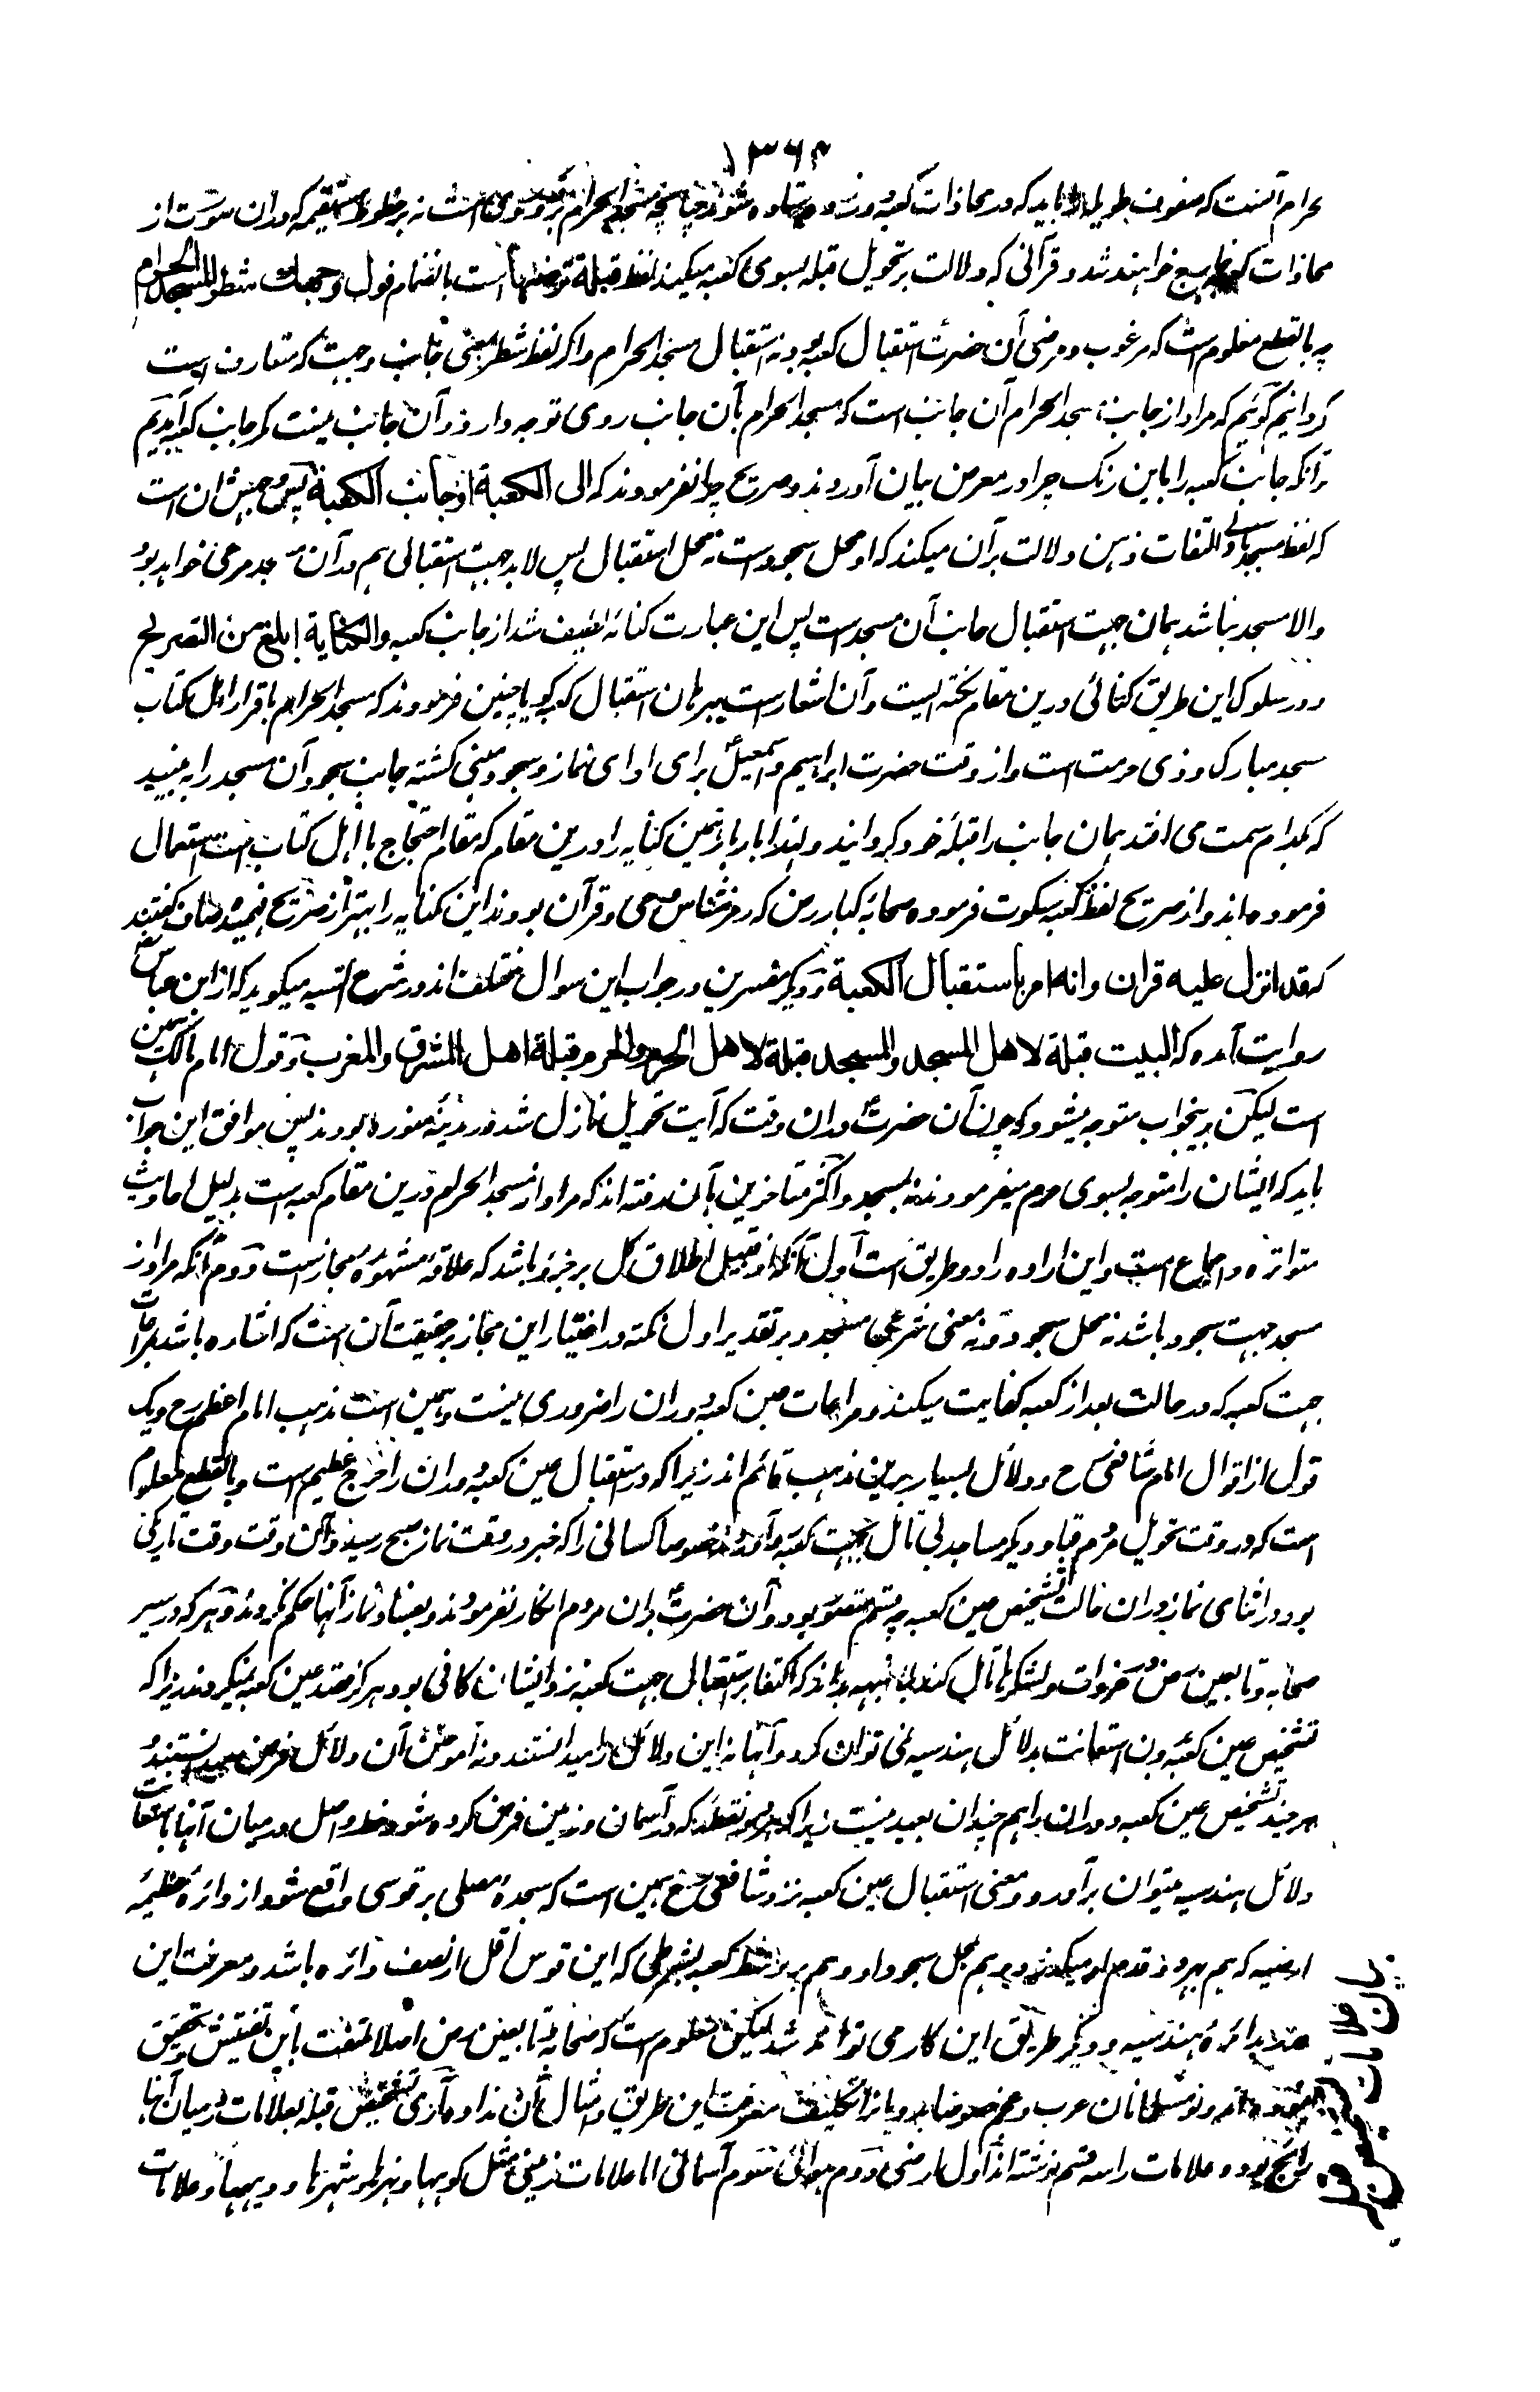 ۱۳۶۴
حرام آنست که صفوف طویله را باید که در محاذات کعبه دور زده ایستاده شوند چنانچه در مسجد الحرام مروج است نه بر خطوط مستقیمه که در آن صورت از
محاذات کعبه خارج خواهند شد و قرآنی که دلالت بر تحویل قبله بسوی کعبه میکند لفظ قبلة ترضٰها است بانضمام فول وجهك شطر المسجد الحرام
چه بالقطع معلوم است که مرغوب و مرضی آن حضرت استقبال کعبه بود نه استقبال مسجد الحرام و اگر لفظ شطر بمعنی جانب و جهت که متعارف است
گردانیم گوئیم که مراد از جانب مسجد الحرام آن جانب است که مسجد الحرام بآن جانب روی توجه دارد و آن جانب نیست مگر جانب کعبه آمدیم
برآنکه جانب کعبه را باین رنگ چرا در معرض بیان آوردند و صریح چرا نفرمودند که الی الکعبة او جانب الکعبة پس وجهش آن است
که لفظ مسجد باولی التفات ذهن دلالت بر آن میکند که او محل سجود است نه محل استقبال پس لابد جهت استقبالی هم در آن مسجد مرعی خواهد بود
والا مسجد نباشد همان جهت استقبال جانب آن مسجد است پس این عبارت کنائه لطیف شد از جانب کعبه والکنایة ابلغ من التصریح
و در سلوک این طریق کنائی درین مقام نکته ایست و آن اشعار است ببرهان استقبال کعبه گویا چنین فرمودند که مسجد الحرام باقرار اهل کتاب
مسجد مبارک و ذی حرمت است و از وقت حضرت ابراهیم و اسمعیلؑ برای ادای نماز و سجود مبنی گشته جانب سجود آن مسجد را به بینید
که بکدام سمت می افتد همان جانب را قبلهٔ خود گردانید و لهذا بار بار همین کنایه را درین مقام که مقام احتجاج با اهل کتاب است استعمال
فرموده اند و از صریح لفظ کعبه سکوت فرموده صحابه کبار رض که رمزشناس وحی و قرآن بودند این کنایه را بهتر از صریح فهمیده صاف گفتند
که قد انزل علیه قران وانه امر باستقبال الکعبة و دیگر مفسرین در جواب این سوال مختلف اند در شرح السنه میگوید که از ابن عباس رض
روایت آمده که البیت قبلة لاهل المسجد والمسجد قبلة لاهل الحرم والحرم قبلة اهل المشرق والمغرب و قول امام مالک همین
است لیکن برین جواب متوجه میشود که چون آن حضرتؐ در آن وقت که آیت تحویل نازل شد در مدینه منوره بودند پس موافق این جواب
باید که ایشان را متوجه بسوی حرم میفرمودند نه بمسجد و اکثر متاخرین بآن رفته اند که مراد از مسجد الحرام درین مقام کعبه است بدلیل احادیث
متواتره و اجماع امت و این اراده را دو طریق است اول آنکه از قبیل اطلاق کل بر جزو باشد که علاقهٔ مشهورهٔ مجاز است دوم آنکه مراد از
مسجد جهت سجود باشد نه محل سجود و نه معنی شرعی مسجد و بر تقدیر اول نکته در اختیار این مجاز بر حقیقت آن است که اشاره باشد بمراعات
جهت کعبه که در حالت بعد از کعبه کفایت میکند و مراعات عین کعبه دوران را ضروری نیست و همین است مذهب امام اعظم رح و یک
قول از اقوال امام شافعی رح و دلائل بسیار برین مذهب قائم اند زیرا که در استقبال عین کعبه دوران را حرج عظیم است و بالقطع معلوم
است که در وقت تحویل مردم قبا و دیگر مساجد بی تامل بجهت کعبه در آمدند خصوصا کسانی را که خبر در وقت نماز صبح رسید و آن وقت وقت تاریکی
بود در اثنای نماز در آن حالت تشخیص عین کعبه چه قسم متصور بود و آن حضرتؐ بر آن مردم انکار نفرمودند و بفساد نماز آنها حکم نکردند و هر که در سیر
صحابه و تابعین رض در غزوات و لشکرها تامل کند بالبداهه بداند که اکتفا باستقبال جهت کعبه نزد ایشان کافی بود و هرگز قصد عین کعبه نمیکردند زیرا که
تشخیص عین کعبه بدون استعانت بدلائل هندسیه نمی توان کرد و آنها نه این دلائل را میدانستند و نه آموختن آن دلائل فرض میدانستند و
هر چند تشخیص عین کعبه دوران را هم چندان بعید نیست زیرا که هر دو نقطه که در آسمان و زمین فرض کرده شود خط واصل در میان آنها باستعانت
دلائل هندسیه میتوان برآورد و معنی استقبال عین کعبه نزد شافعی رح همین است که سجدهٔ مصلی بر قوسی واقع شود از دائرهٔ عظیمهٔ
ارضیه که هم بهر دو قدم او میکند و هم بمحل سجود او و هم بر وسط کعبه بشرطی که این قوس اقل از نصف دائره باشد و معرفت این
بدائرهٔ هندسیه و دیگر طریق این کار می تواند شد لیکن معلوم است که صحابه و تابعین رض اصلا ملتفت باین تفتیش و تحقیق
نبوده اند و نومسلمانان عرب و عجم خصوصا اهل بادیه را تکلیف معرفت این طریق و امثال آن نداده آری تشخیص قبله بعلامات در میان آنها
رائج بود و علامات را سه قسم نوشته اند اول ارضی دوم هوائی سوم آسمانی اما علامات زمینی مثل کوهها و نهرها و شهرها و دیهها و علامات